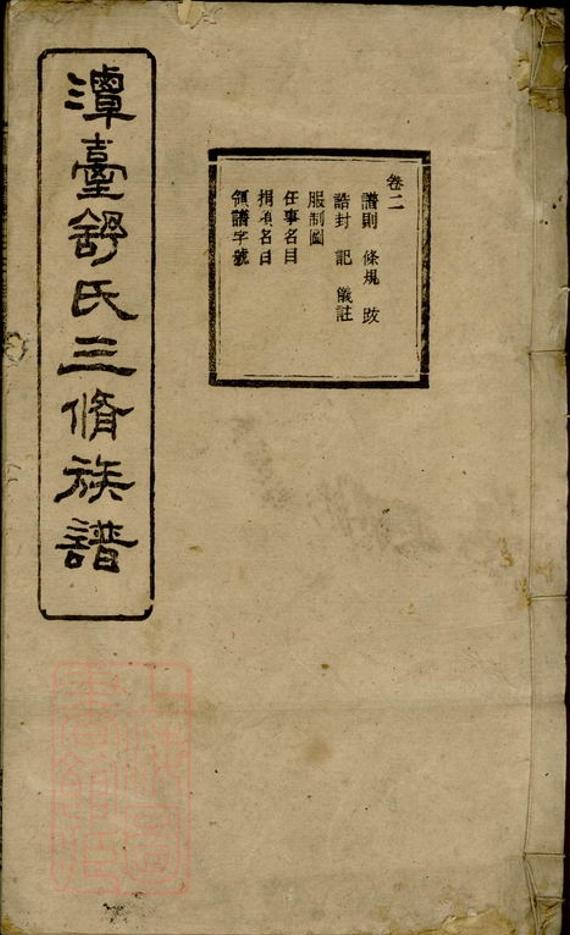 潭臺舒氏三脩族譜
卷二
譜則 條規 跋
誥封 記 儀註
服制圖
任事名目
捐項名目
領譜字號